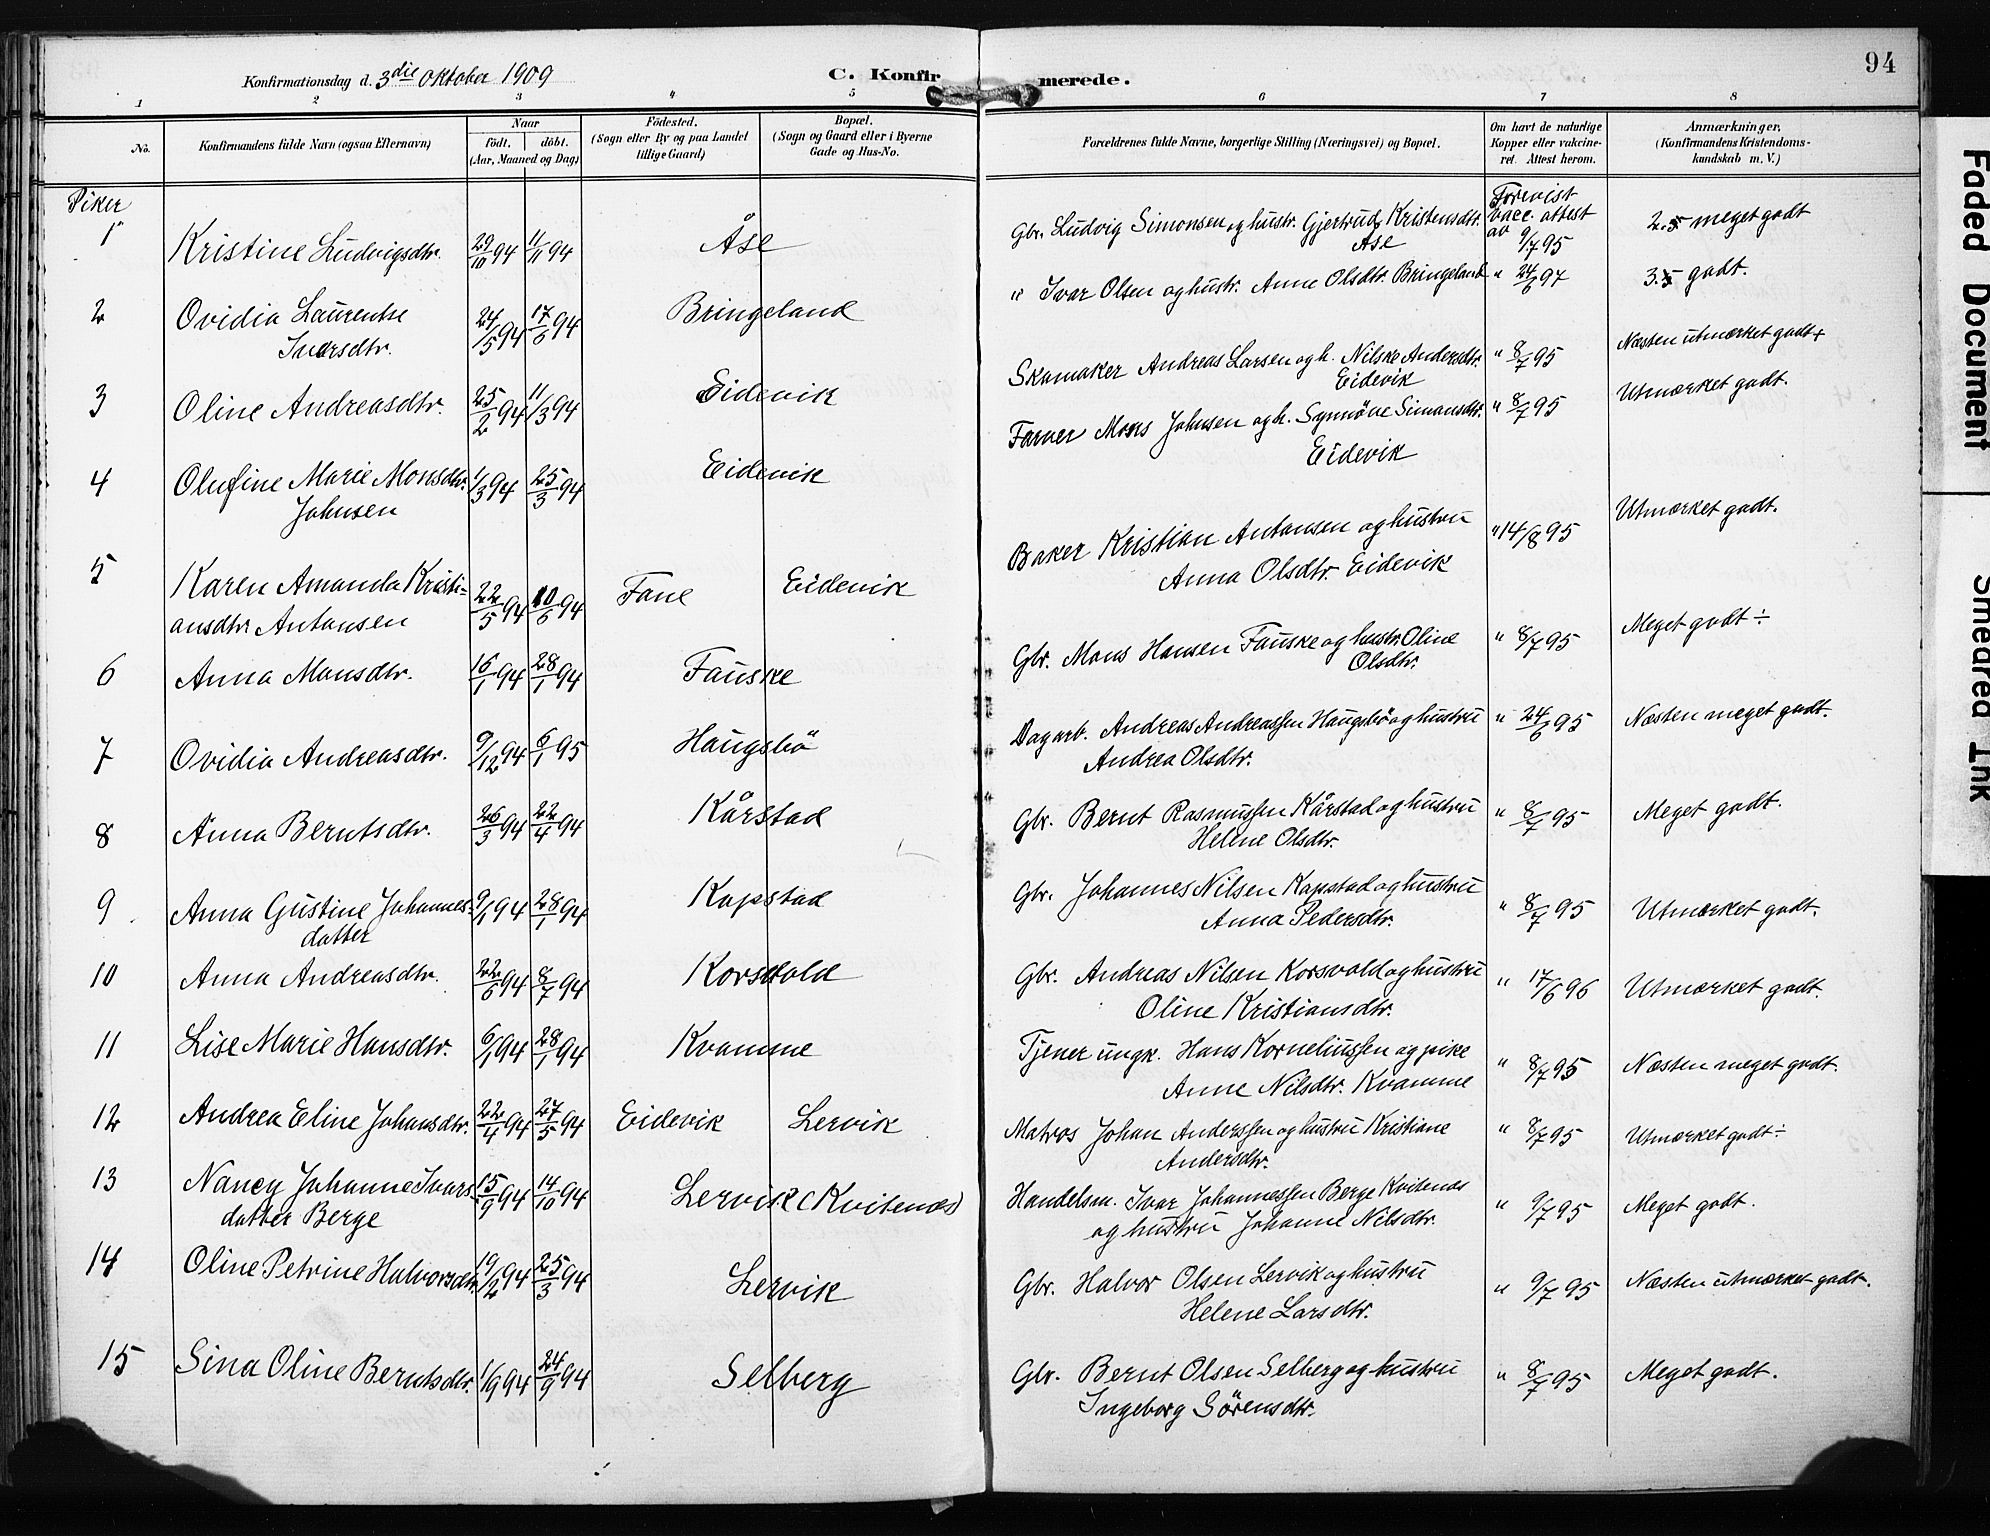 94
Konfirmationsdag d. 3die Oktober 1909
C. Konfirmerede.
1 2 3 4 5 6 7 8
No.
Konfirmandens fulde Navn (ogsaa Efternavn)
Naar
födt. döbt.
(Aar, Maaned og Dag)
Födested.
(Sogn eller By og paa Landet
tillige Gaard)
Bopæl.
(Sogn og Gaard eller i Byerne
Gade og Hus-No.
Forældrenes fulde Navne, borgerlige Stilling (Næringsvei) og Bopæl.
Om havt de naturlige
Kopper eller vakcine-
ret. Attest herom.
Anmærkninger.
(Konfirmandens Kristendoms-
kundskab m. V.)
Piker
1 Kristine Ludvigsdtr. 29/10 94 11/11 94 Åse Gbr. Ludvig Simonsen og hustr. Gjertrud Kristensdtr. Åse Forevist vacc. attest av 9/7 95 2.5 meget godt
2 Ovidia Laurentse Ivarsdtr. 24/5 94 17/6 94 Bringeland " Ivar Olsen og hustr. Anne Olsdtr. Bringeland " 24/6 97 3.5 godt.
3 Oline Andreasdtr. 25/2 94 11/3 94 Eidevik Skomaker Andreas Larsen og h. Nilske Andersdtr. Eidevik " 8/7 95 Næsten utmærket godt +
4 Olufine Marie Monsdtr. Johnsen 1/3 94 25/3 94 Eidevik Farver Mons Johnsen og h. Synnöve Simonsdtr. Eidevik " 8/7 95 Utmærket godt.
5 Karen Amanda Kristi-
ansdtr Antonsen 22/5 94 10/6 94 Fane Eidevik Baker Kristian Antonsen og hustru Anna Olsdtr. Eidevik " 14/8 95 Utmærket godt.
6 Anna Monsdtr. 16/1 94 28/1 94 Fauske Gbr. Mons Hansen Fauske og hustr. Oline Olsdtr. " 8/7 95 Meget godt ÷
7 Ovidia Andreasdtr. 9/12 94 6/1 95 Haugsbö Dagarb. Andreas Andreassen Haugsbö og hustru Andrea Olsdtr. " 24/6 95 Næsten meget godt.
8 Anna Berntsdtr. 26/3 94 22/4 94 Kårstad Gbr. Bernt Rasmussen Kårstad og hustru Helene Olsdtr. " 8/7 95 Meget godt.
9 Anna Gustine Johannes-
datter 9/1 94 28/1 94 Kapstad Gbr. Johannes Nilsen Kapstad og hustru Anna Pedersdtr. " 8/7 95 Utmærket godt.
10 Anna Andreasdtr. 22/6 94 8/7 94 Korsvold Gbr. Andreas Nilsen Korsvold og hustru Oline Kristiansdtr. " 17/6 96 Utmærket godt.
11 Lise Marie Hansdtr. 6/1 94 28/1 94 Kvamme Tjener ungk. Hans Korneliussen og pike Anne Nilsdtr. Kvamme " 8/7 95 Næsten meget godt.
12 Andrea Eline Johansdtr. 22/4 94 27/5 94 Eidevik Lervik Matros Johan Anderssen og hustru Kristiane Andersdtr. " 8/7 95 Utmærket godt ÷
13 Nancy Johanne Ivars-
datter Berge 15/9 94 14/10 94 Lervik (Kvitenæs) Handelsm. Ivar Johannessen Berge Kvitenæs og hustru Johanne Nilsdtr. " 9/7 95 Meget godt.
14 Oline Petrine Halvorsdtr. 19/2 94 25/3 94 Lervik Gbr. Halvor Olsen Lervik og hustru Helene Larsdtr. " 9/7 95 Næsten utmærket godt.
15 Sina Oline Berntsdtr. 1/9 94 24/9 94 Selberg Gbr. Bernt Olsen Selberg og hustru Ingeborg Sörensdtr. " 8/7 95 Meget godt.
Faded Document
Smeared Ink